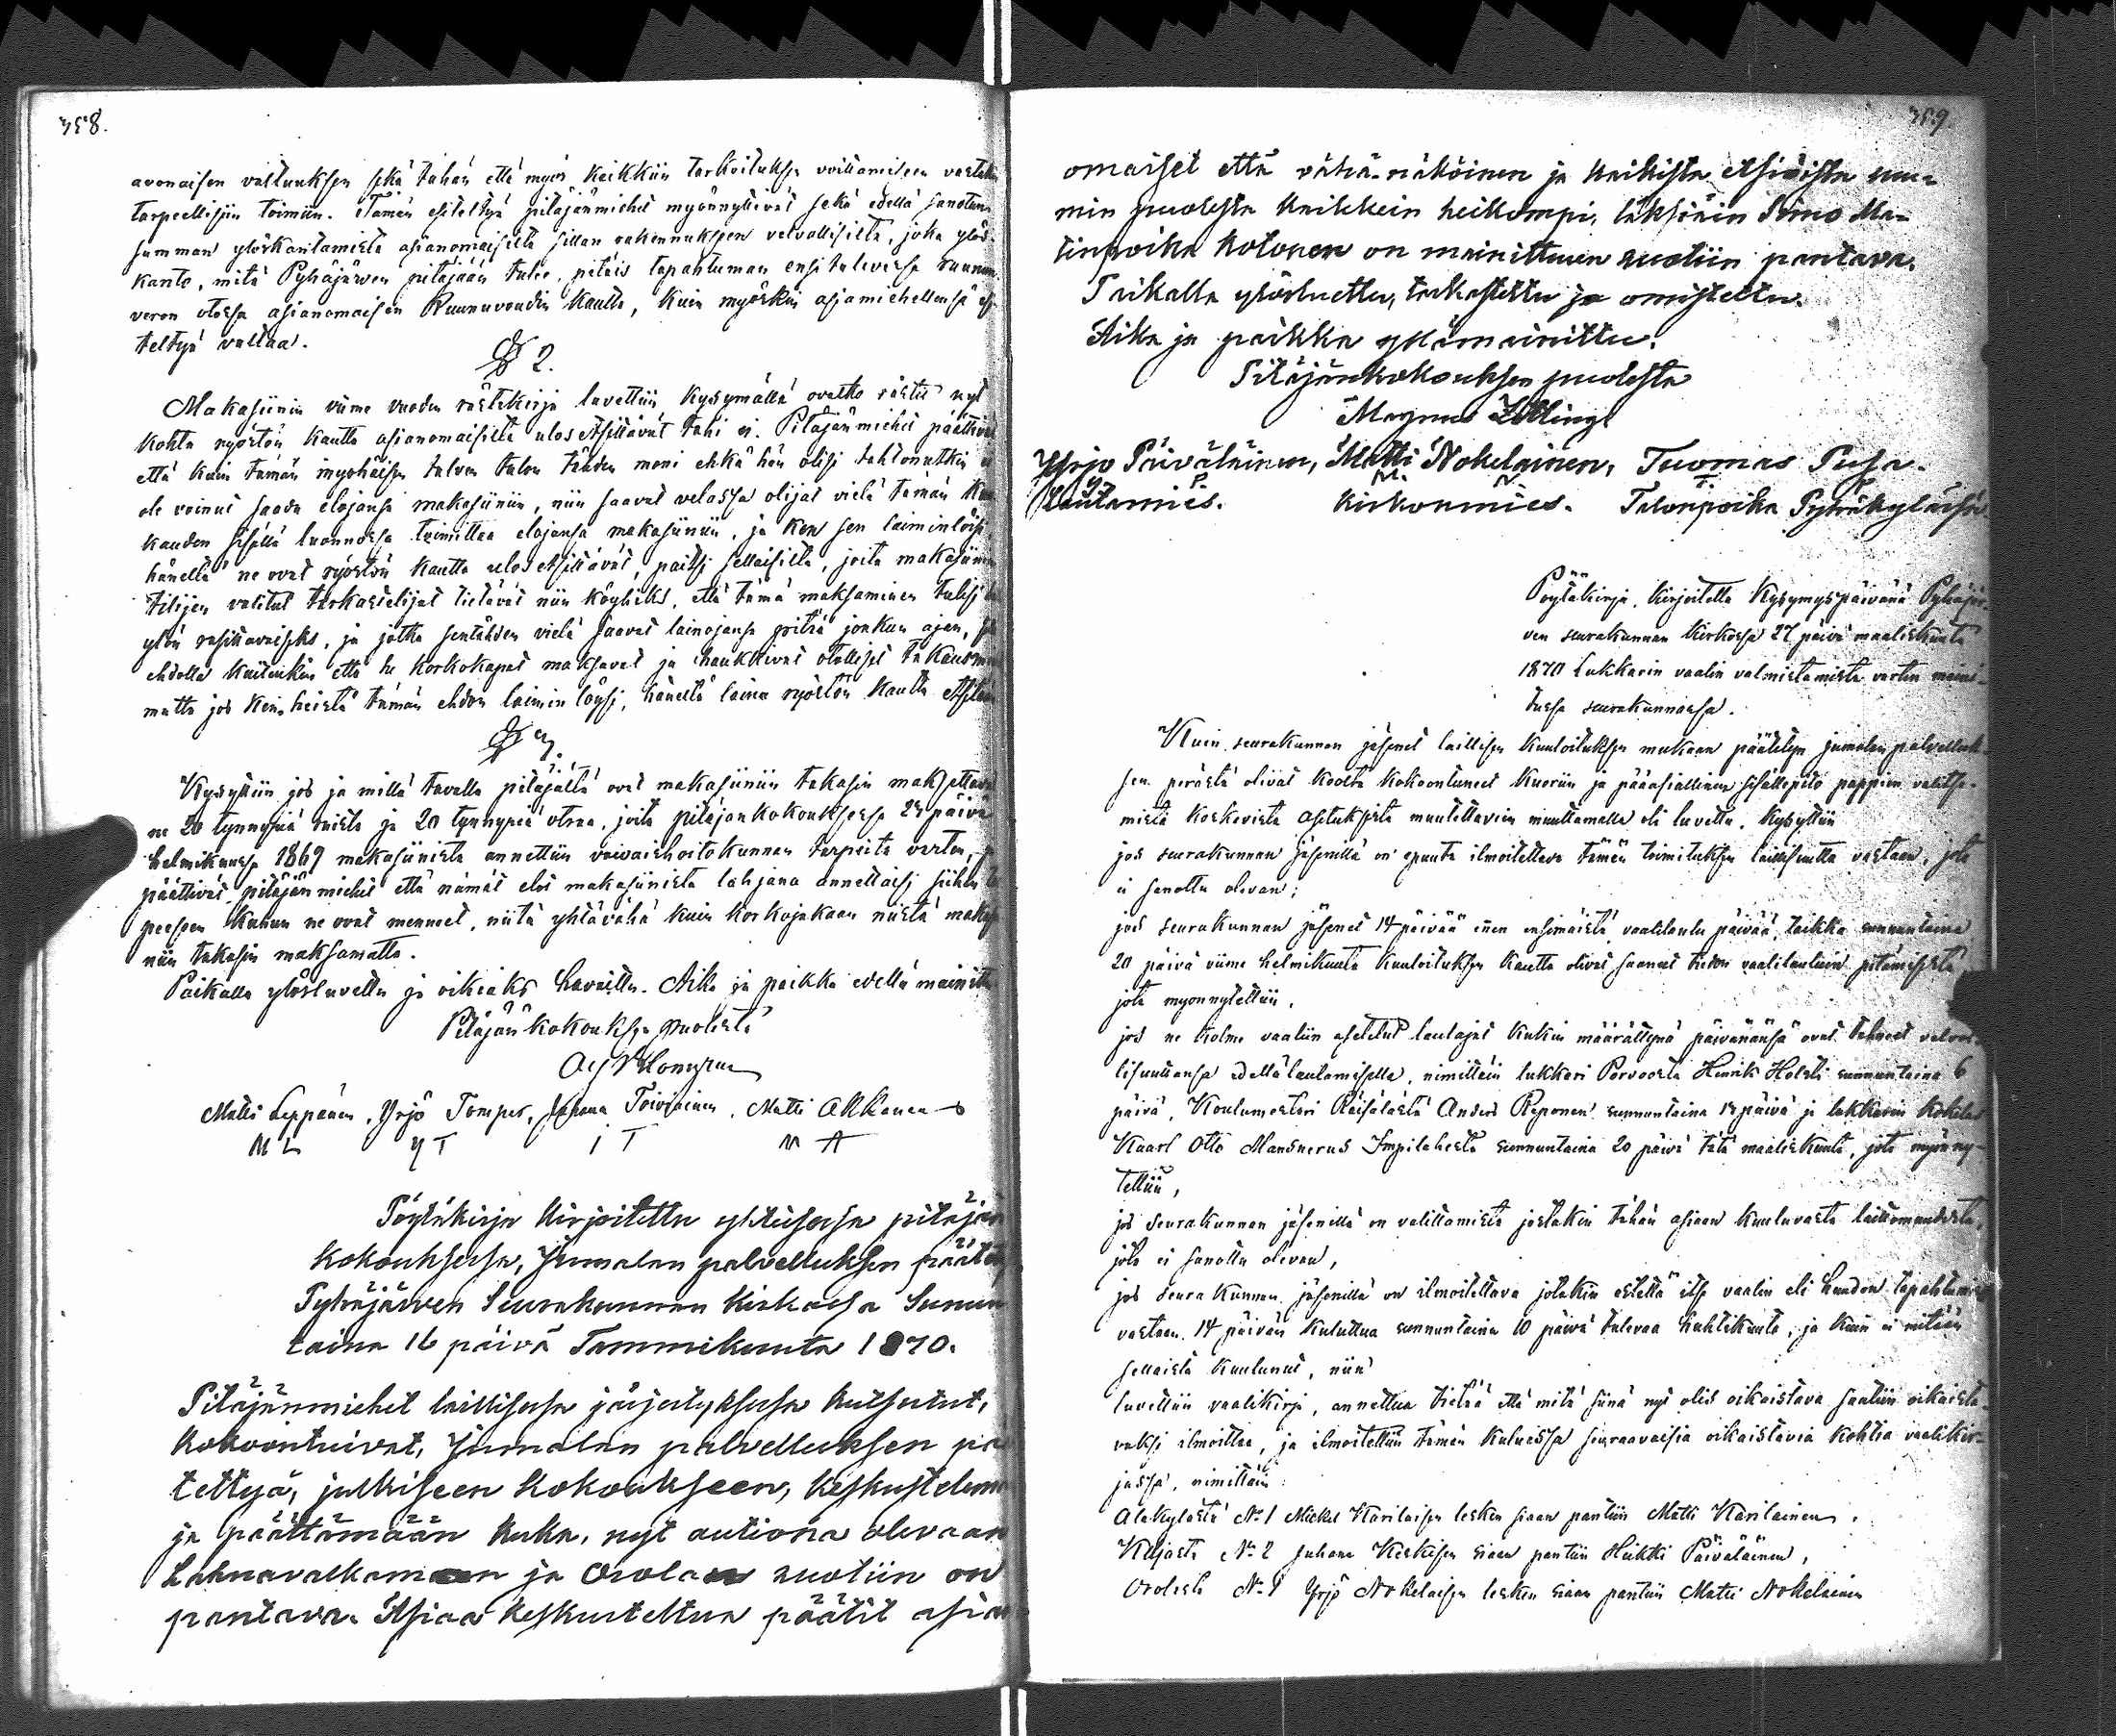 358.
avonaisen valtuuksen sekä tähän että myös kaikkiin tarkoituksen voittamiseen vastaan
tarpeellisiin toimiin. Tämän esiteltyä pitäjänmiehet myönnyttivät sekä edellä sanotun
summan ylöskantamista asianomaisilta sillan rakennuksen velvollisilta, joka ylös-
kanto, mitä Pyhäjärven pitäjään tulee, pitäis tapahtuman ensitulevassa ruunun
veron otossa asianomaisen Ruununvoudin kautta, kuin myöskin asiamiehellensä esi-
teltyä valtaa.
§ 2.
Makasiinin viime vuoden rästikirja luvettiin kysymällä ovatko rästit nyt
kohta ryöstön kautta asianomaisilta ulos etsittävät tahi ei. Pitäjänmiehet päättivät
että kuin tämän myöhäisen talven tulon tähden moni ehkä hän olisi tahtonutkin ei
ole voinut saada elojansa makasiiniin, niin saavat velassa olijat vielä tämän kuu
kauden sisällä luonnossa toimittaa elojansa makasiiniin, ja ken sen laiminlöisi
häneltä ne ovat ryöstön kautta ulos etsittävät, paitsi sellaisilta, joita makasiinin
tilijen valitut tarkastelijat tietävät niin köyhiks, että tämä maksaminen tulisi
ylön rasittavaiseks, ja jotka sentähden vielä saavat lainojansa pitää jonkun ajan, sillä
ehdolla kuitenkin että he korkokapat maksavat ja hankkivat otolliset takausmiehet
mutta jos ken heistä tämän ehdon laimin löysi, häneltä laina ryöstön kautta etsitään
§ 3.
Kysyttiin jos ja millä tavalla pitäjältä ovat makasiiniin takasin maksettavat
ne 20 tynnyriä ruista ja 20 tynnyriä otraa, joita pitäjänkokouksessa 28 päivä
helmikuussa 1869 makasiinista annettiin vaivaishoitokunnan tarpeita varten,
päättivät pitäjänmiehet että nämät elot makasiinista lahjana annettaisi siihen tar-
peesen kuhun ne ovat menneet, niitä yhtävähä kuin korkojakaan niistä makasii-
niin takasin maksamatta.
Paikalla ylösluvettu ja oikiaks havaittu. Aika ja paikka edellä mainittu
Pitäjän kokouksen puolesta
Matti Leppänen, Yrjö Tompuri, Juhana Toiviainen, Matti Akkanen
M L Y T I T M A
Pöytäkirja kirjoitettu yhteisessä pitäjän
kokouksessa, Jumalan palvelluksen päätettyä
Pyhäjärven Seurakunnan kirkossa Sunnun
taina 16 päivä Tammikuuta 1870.
Pitäjänmiehet laillisessa järjestyksessä kutsutut,
kokoontuivat, Jumalan palvelluksen pää
tettyä, julkiseen kokoukseen, keskustelemaan
ja päättämään kuka, nyt autiona olevaan
Lahnavalkaman ja Orolan ruotiin on
pantava. Asiaa keskusteltua päätit asian
359.
omaiset että vähä-näköinen ja kaikista etsiöistä muu-
min puolesta kaikkein heikompi, luksöiin Simo Ma-
tinpoika Kotonen on mainittuun ruotiin pantava.
Paikalla ylösluettu, tarkastettu ja omistettu.
Aika ja paikka ylämainittu.
Pitäjänkokouksen puolesta
Magnus
Yrjö Päiväläinen, Matti Nokelainen, Tuomas Pusa.
Lautamies. Kirkonmies. Talonpoika Pyhäkylässä
Pöytäkirja, kirjoitettu Kysymyspäivänä Pyhäjär-
ven seurakunnan kirkossa 27 päivä maaliskuuta
1870 Lukkarin vaalin valmistamista varten maini-
tussa seurakunnassa.
Kuin seurakunnan jäsenet laillisen kuuloituksen mukaan päätetyn jumalan palvelluk-
sen perästä olivat koolta kokoontuneet kuoriin ja pääasiallinen sisällepito pappein valitse-
mista koskevista asetuksista muutettaviin muuttamalla oli luvettu. Kysyttiin
jos seurakunnan jäsenillä on epuuta ilmoitettava tämän toimituksen laillisuutta vastaan, jota
ei sanottu olevan;
jos seurakunnan jäsenet 14 päivää ennen ensimäistä vaalilaulu päivää, taikka sunnuntaina
20 päivä viime helmikuuta kuuloituksen kautta olivat saaneet tiedon vaalilauluin pitämisestä,
jota myönnytettiin,
jos ne kolme vaaliin asetetut laulajat kukin määrättynä päivänänsä ovat tehneet velvol-
lisuuttansa edellälaulamisella, nimittäin lukkari Porvoosta Henrik Holsti sunnuntaina 6
päivä, Koulumestari Räisälästä Anders Reponen sunnuntaina 13 päivä ja lukkarin kokelas
Kaarl Otto Mansnerus Impilahesta sunnuntaina 20 päivä tätä maaliskuuta, jota myönny-
tettiin,
jos seurakunnan jäsenillä on valittamista jostakin tähän asiaan kuuluvasta laittomuudesta,
jota ei sanottu olevan,
jos seurakunnan jäsenillä on ilmoitettava jotakin estettä itse vaalin eli huudon tapahtumista
vastaan 14 päivän kuluttua sunnuntaina 10 päivä tulevaa huhtikuuta, ja kuin ei mitään
sellaista kuulunut, niin
luvettiin vaalikirja, annettua tietää että mitä siinä nyt olis oikaistava saatiin oikaista-
vaksi ilmoittaa, ja ilmoitettiin tämän kuluessa seuraavaisia oikaistavia kohtia vaalikir-
jassa, nimittäin:
Alakylästä No 1 Mickel Kärilaisen lesken siaan pantiin Matti Kärilainen,
Kiljasta No 2 Juhana Kiskisen siaan pantiin Heikki Päiväläinen,
Orolasta No 9 Yrjö Nokelaisen lesken siaan pantiin Matti Nokelainen